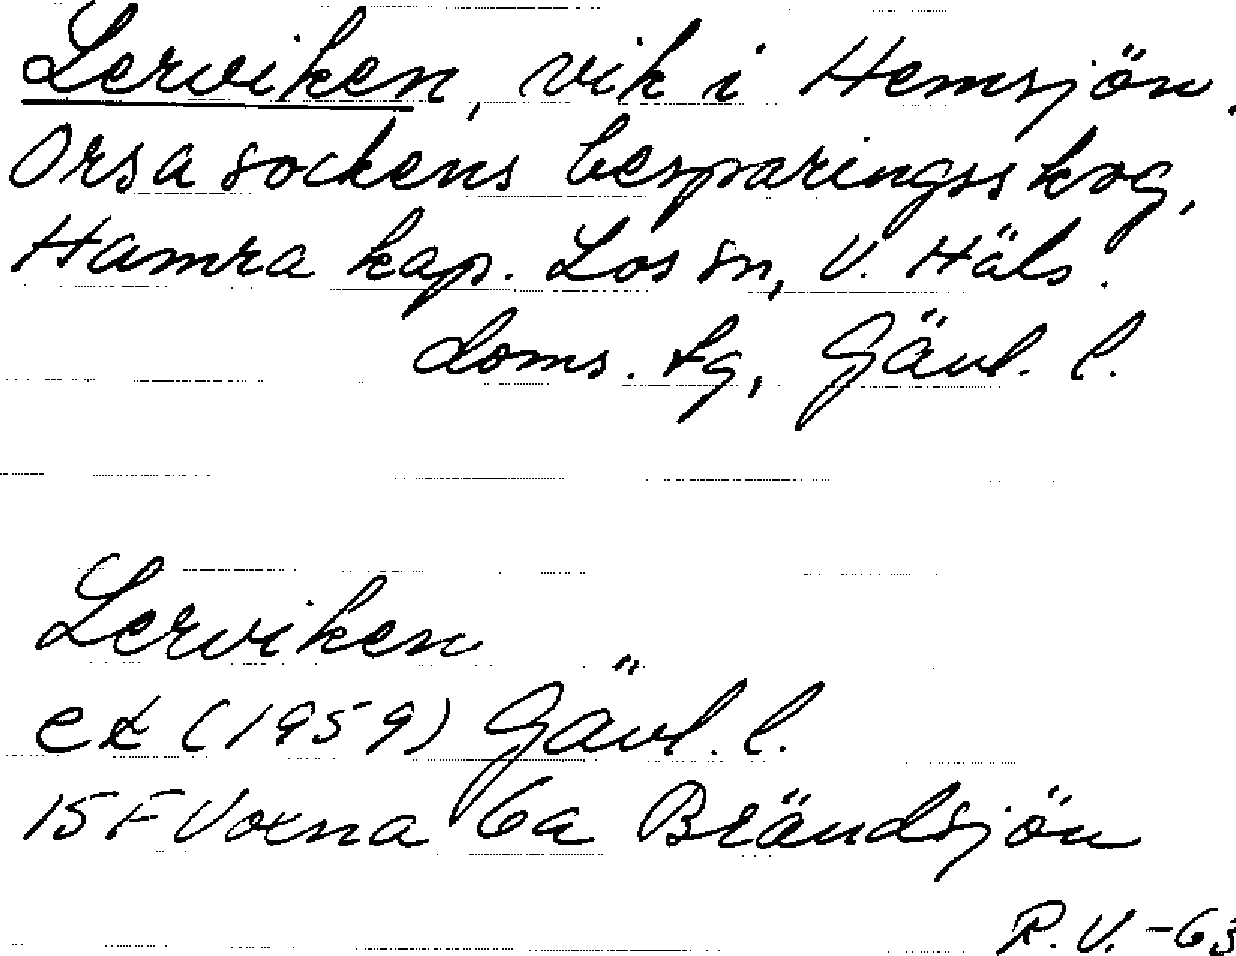 Lerviken, vik i Hemsjön.
Orsa sockens besparingsskog,
Hamra kap. Los sn, V. Häls.
doms. tg, Gävl. l.
Lerviken
ek (1959) Gävl. l.
15F Voxna 6a Brändsjön
R.V. -63